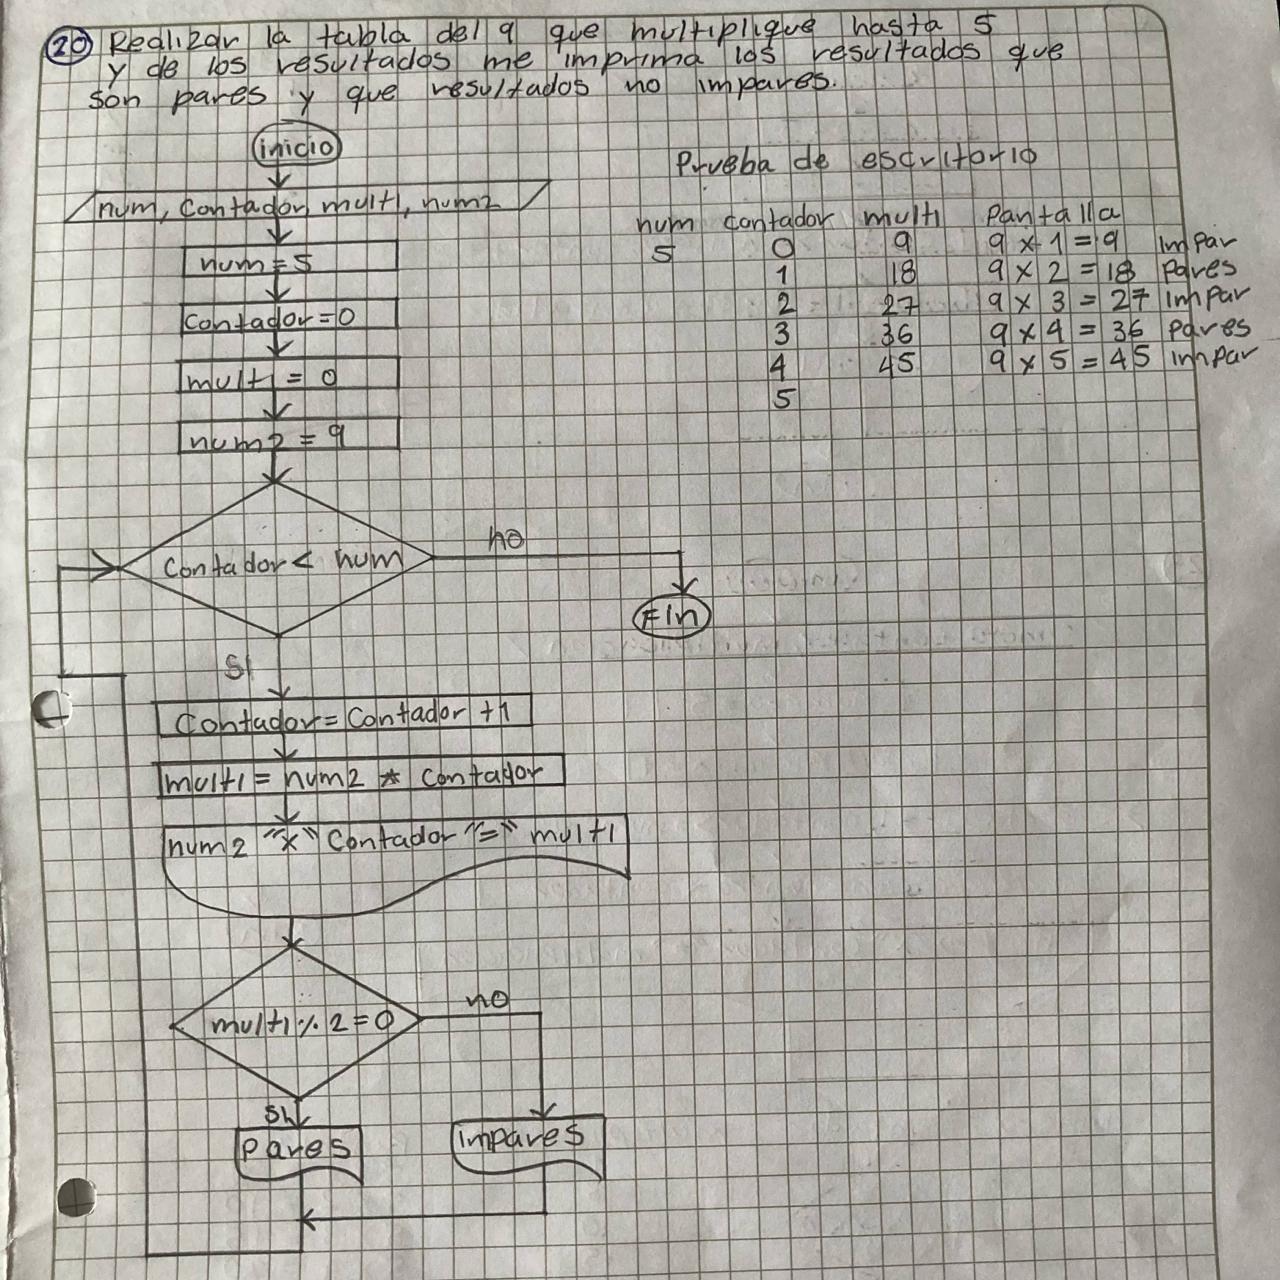 20 Realizar la tabla del 9 que multiplique hasta 5
y de los resultados me imprima los resultados que
son pares y que resultados no impares.
inicio
num, contador, multi, num2
num = 5
contador = 0
multi = 0
num2 = 9
contador < num
no
Fin
si
Contador = Contador + 1
multi = num2 * contador
num2 "x" Contador "=" multi
multi % 2 = 0
no
si
Pares
Impares
Prueba de escritorio
num contador multi Pantalla
5 0 9 9 x 1 = 9 Impar
1 18 9 x 2 = 18 Pares
2 27 9 x 3 = 27 Impar
3 36 9 x 4 = 36 pares
4 45 9 x 5 = 45 impar
5